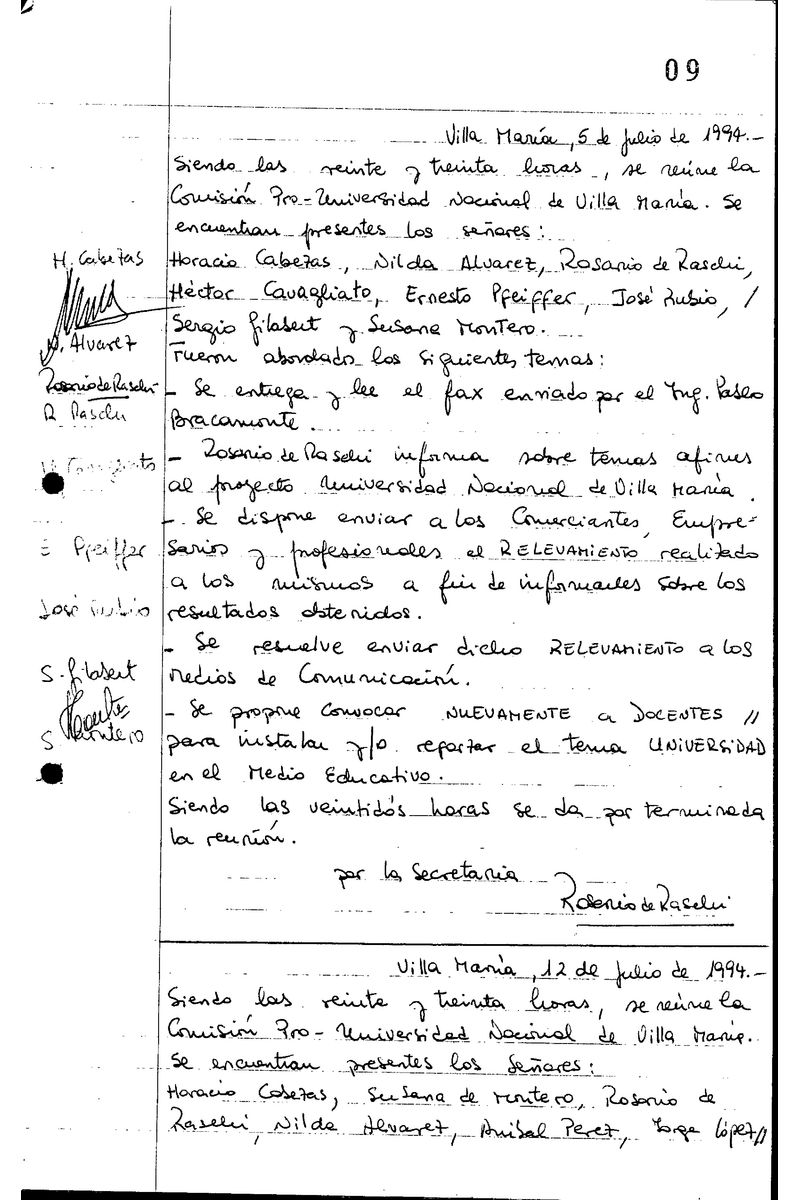 09
Villa María, 5 de Julio de 1994.-
Siendo las veinte y treinta horas, se reúne la
Comisión Pro-Universidad Nacional de Villa María. Se
encuentran presentes los señores:
H. Cabezas
Horacio Cabezas, Nilda Alvarez, Rosario de Raschi,
Héctor Cavagliato, Ernesto Pfeiffer, José Rubio, /
Sergio Gilabert y Susana Montero.
N. Alvarez
Fueron abordados los siguientes temas:
Rosario de Raschi
- Se entrega y lee el fax enviado por el Ing. Pablo
R. Raschi
Bracamonte.
- Rosario de Raschi informa sobre temas afines
H Cavagliato
al proyecto Universidad Nacional de Villa María.
- Se dispone enviar a los Comerciantes, Empre-
E Pfeiffer
sarios y profesionales el RELEVAMIENTO realizado
a los mismos a fin de informarles sobre los
José Rubio
resultados obtenidos.
- Se resuelve enviar dicho RELEVAMIENTO a los
S. Gilabert
Medios de Comunicación.
- Se propone convocar NUEVAMENTE a DOCENTES //
S Montero
para instalar y/o reportar el tema UNIVERSIDAD
en el Medio Educativo.
Siendo las veintidós horas se da por terminada
la reunión.
por la Secretaria
Rosario de Raschi
Villa María, 12 de Julio de 1994.-
Siendo las veinte y treinta horas, se reúne la
Comisión Pro-Universidad Nacional de Villa María.
Se encuentran presentes los Señores:
Horacio Cabezas, Susana de Montero, Rosario de
Raschi, Nilda Alvarez, Anibal Perez, Jorge López//